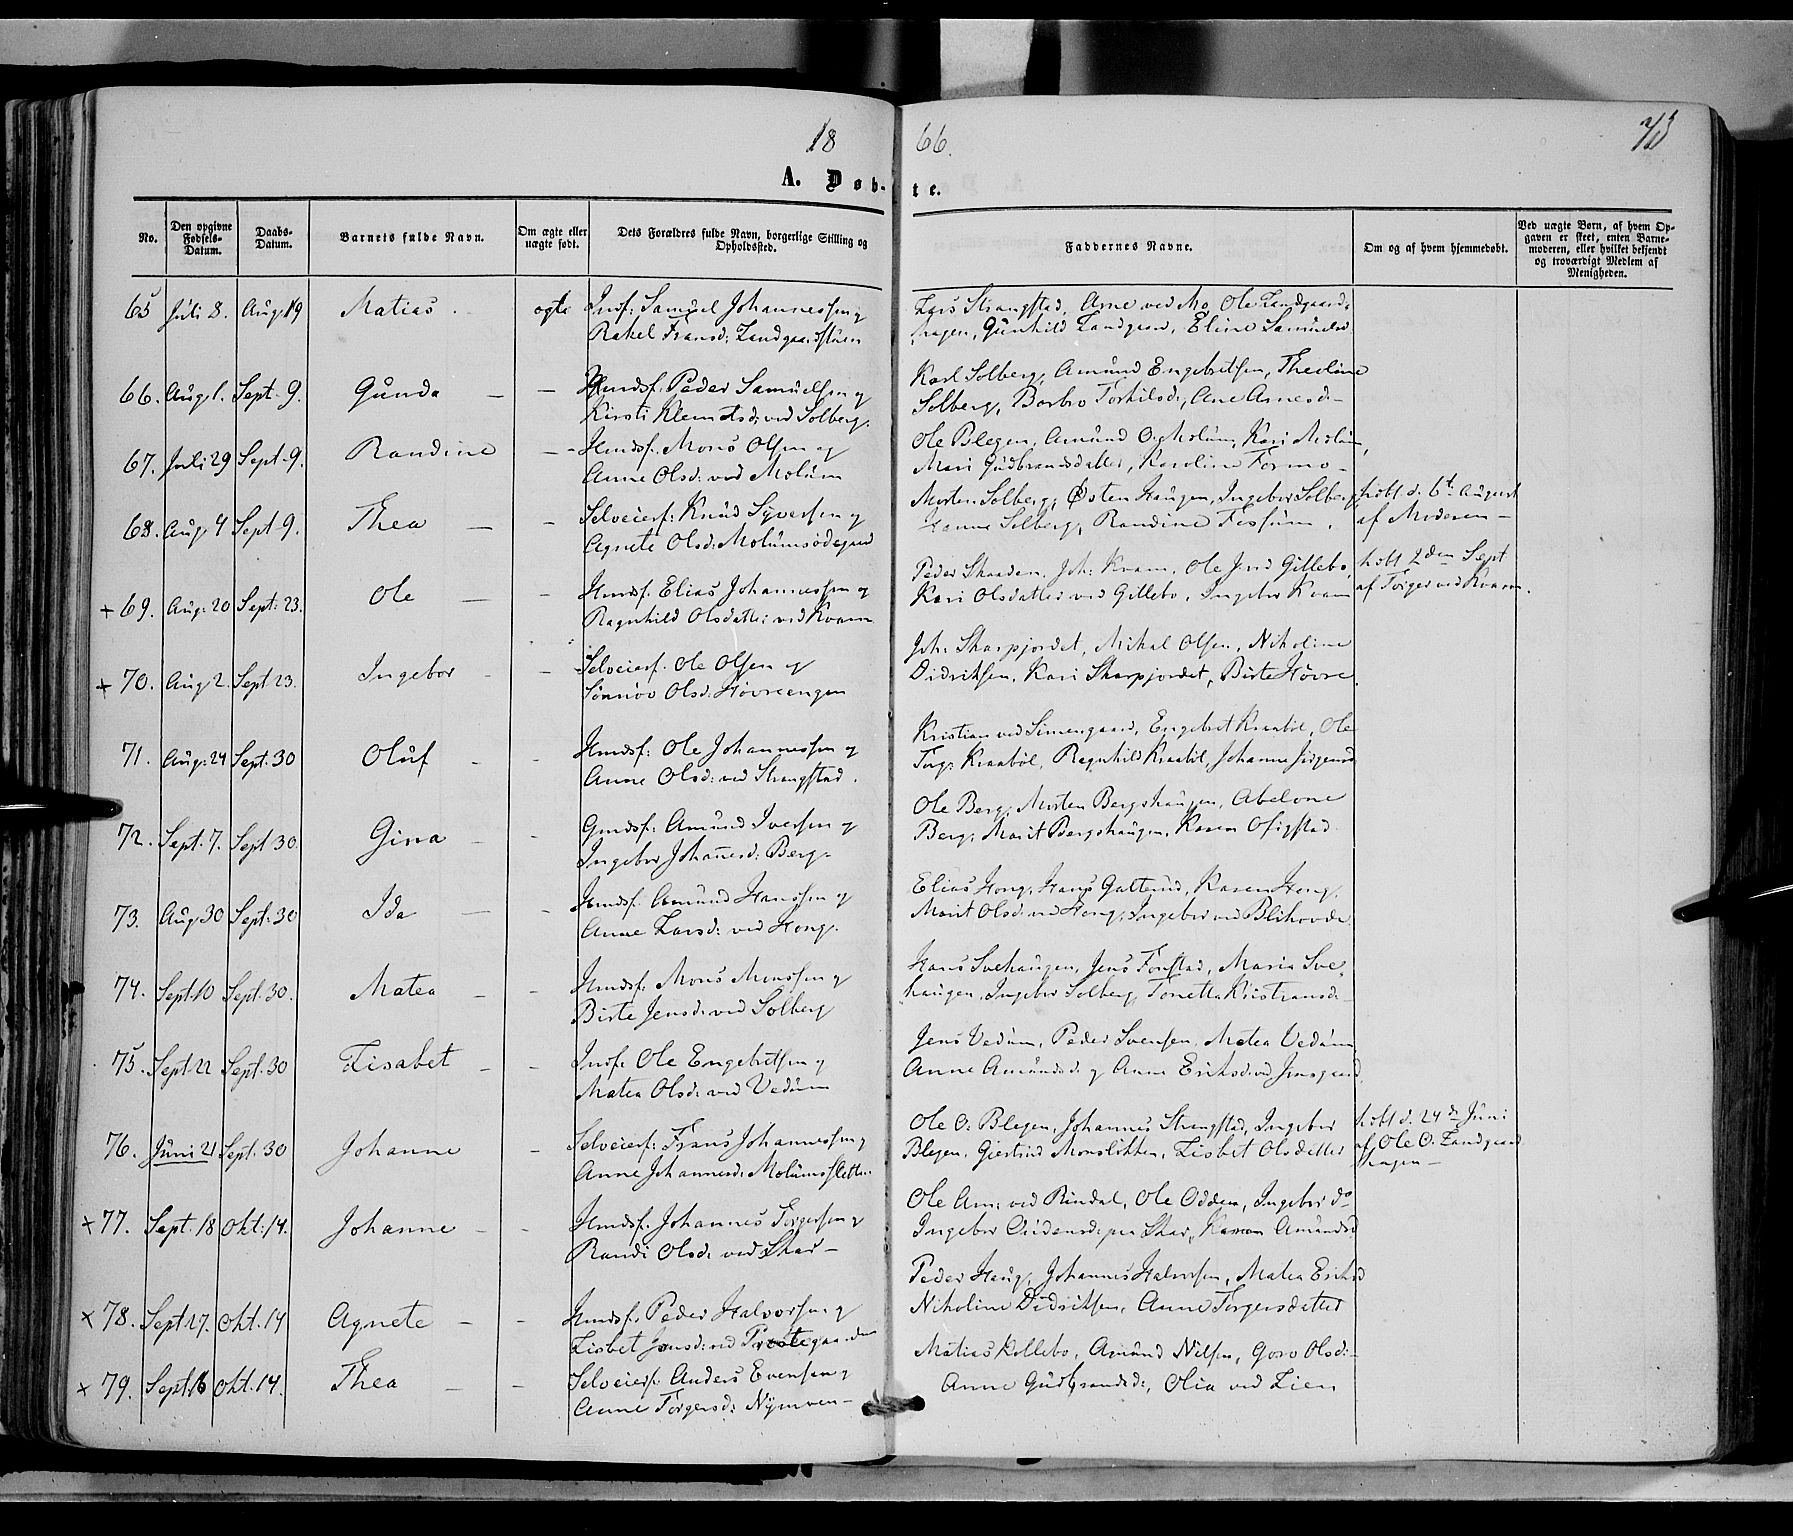 18 66. 73
A. Døb- te.
No. Den opgivne Fødsels-Datum. Daabs-Datum. Barnets fulde Navn. Om ægte eller uægte født. Dets Forældres fulde Navn, borgerlige Stilling og Opholdssted. Faddernes Navne. Om og af hvem hjemmedøbt. Ved uægte Børn, af hvem Opgaven er skeet, enten Barnemoderen, eller hvilket bekjendt og troværdigt Medlem af Menigheden.
65 Juli 8. Aug: 19 Matias. ægte Indf: Samuel Johannessen og Lars Strangstad, Arne ved Mo, Ole Landgaards
Rakel Fransd: Landgaardstuen hagen, Gunhild Landgaard, Eline Samuelsd
66. Aug. 1. Sept. 9. Gunda — — Hmdsf: Peder Samuelsen og Karl Solberg, Amund Engebretsen, Theoline
Kirsti Klemetsd: ved Solberg. Solberg, Barbro Torkilsd:, Ane Arnesd:-
67. Juli 29 Sept. 9. Randine — Hmdsf: Mons Olsen og Ole Blegen, Amund Molum, Kari Molum,
Anne Olsd: ved Molum Mari Gudbrandsdatter, Karoline Formo -
68. Aug. 4 Sept 9. Thea — — Selveierf: Knud Syversen og Morten Solberg, Østen Haugen, Ingebor Solberg, hdbt d. 6te August
Agnete Olsd: Molumsødegaard Hanna Solberg, Randine Fossum, af Moderen —
+ 69. Aug: 20 Sept: 23. Ole — — Hmdsf: Elias Johannessen og Peder Skaaden, Joh: Kvam, Ole Gillebo, hdbt 2den Sept
Ragnhild Olsdatter ved Kvam Kari Olsdatter ved Gillebo, Ingebor Kvam af Torger ved Kvam.
+ 70. Aug 2. Sept 23. Ingebor - — Selveierf: Ole Olsen og Joh: Skarpjordet, Mikal Olsen, Nikoline
Sønnøv Olsd: Høvreengen Didriksen, Kari Skarpjordet, Birte Høvre.
71. Aug: 24 Sept: 30 Oluf - - Hmdsf: Ole Johannessen og Kristian ved Simengaard, Engebret Kraabøl, Ole
Anne Olsd: ved Strangstad. Torg: Kraabøl, Ragnhild Kraabøl, Johanne Jørgensd
72. Sept. 7. Sept 30. Gina - - Gmdsf: Amund Iversen og Ole Berg, Morten Bergshaugen, Abelone
Ingebor Johannesd: Berg. Berg, Marit Bergshaugen, Karen Ofigstad.
73. Aug 30 Sept: 30 Ida — - Hmdsf: Amund Hanssen og Elias Hong, Hans Galterud, Karen Hong,
Anne Larsd: ved Hong. Marit Olsd: ved Hong, Ingebor ved Blihovde.
74. Sept. 10 Sept. 30. Matea - - Hmdsf: Mons Monssen og Hans Svehaugen, Jens Fonstad, Maria Sve-
Birte Jensd: ved Solberg haugen, Ingebor Solberg, Tonetta Kristiansd:-
75. Sept 22 Sept. 30 Lisabet - - Indf: Ole Engebretsen og Jens Vedum, Peder Svensen, Matea Vedum
Matea Olsd: ved Vedum Anne Amundsd: og Anne Eriksd: ved Jensgaard
76. Juni 21 Sept. 30 Johanne - Selveierf: Frans Johannessen og Ole O: Blegen, Johannes Strangstad, Ingebor hdbt d. 24de Juni
Anne Johannesd: Molumsslette: Blegen, Giertrud Monslikken, Lisbet Olsdatter af Ole O. Landgaard
hagen —
x 77. Sept. 18 Okt: 14. Johanne - - Hmdsf: Johannes Torgersen og Ole Am: ved Rindal, Ole Odden, Ingebor do
Randi Olsd: ved Skar — Ingebor Audensd: paa Skar, Karen Amundsd
x 78. Sept 27. Okt. 14 Agnete - - Hmdsf: Peder Halvorsen og Peder Haug, Johannes Halvorsen, Matea Eriksd
Lisbet Jensd: ved Prestegaarden Nikoline Didriksen, Anne Torgersdatter
x 79. Sept. 16 Okt. 14. Thea — — Selveierf: Anders Evensen og Matias Kollebo, Amund Nilsen, Goro Olsd:-
Anne Torgersd: Nymoen - Anne Gudbrandsd:, Olia ved Lien